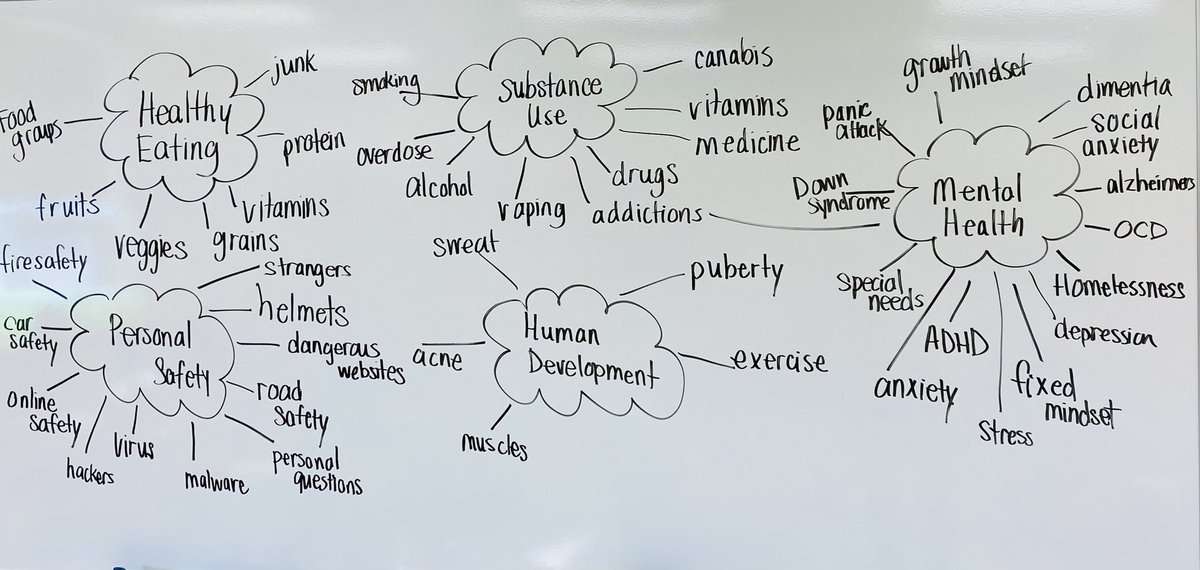 Healthy
Eating
junk
Food
groups
protein
fruits
veggies
grains
vitamins
Substance
Use
smoking
canabis
vitamins
medicine
overdose
alcohol
vaping
drugs
addictions
Mental
Health
growth
mindset
panic
attack
dimentia
social
anxiety
alzheimers
Down
syndrome
OCD
special
needs
Homelessness
ADHD
depression
anxiety
fixed
mindset
stress
Personal
Safety
firesafety
strangers
helmets
car
safety
dangerous
websites
online
safety
road
safety
hackers
virus
malware
personal
questions
Human
Development
sweat
puberty
acne
exercise
muscles